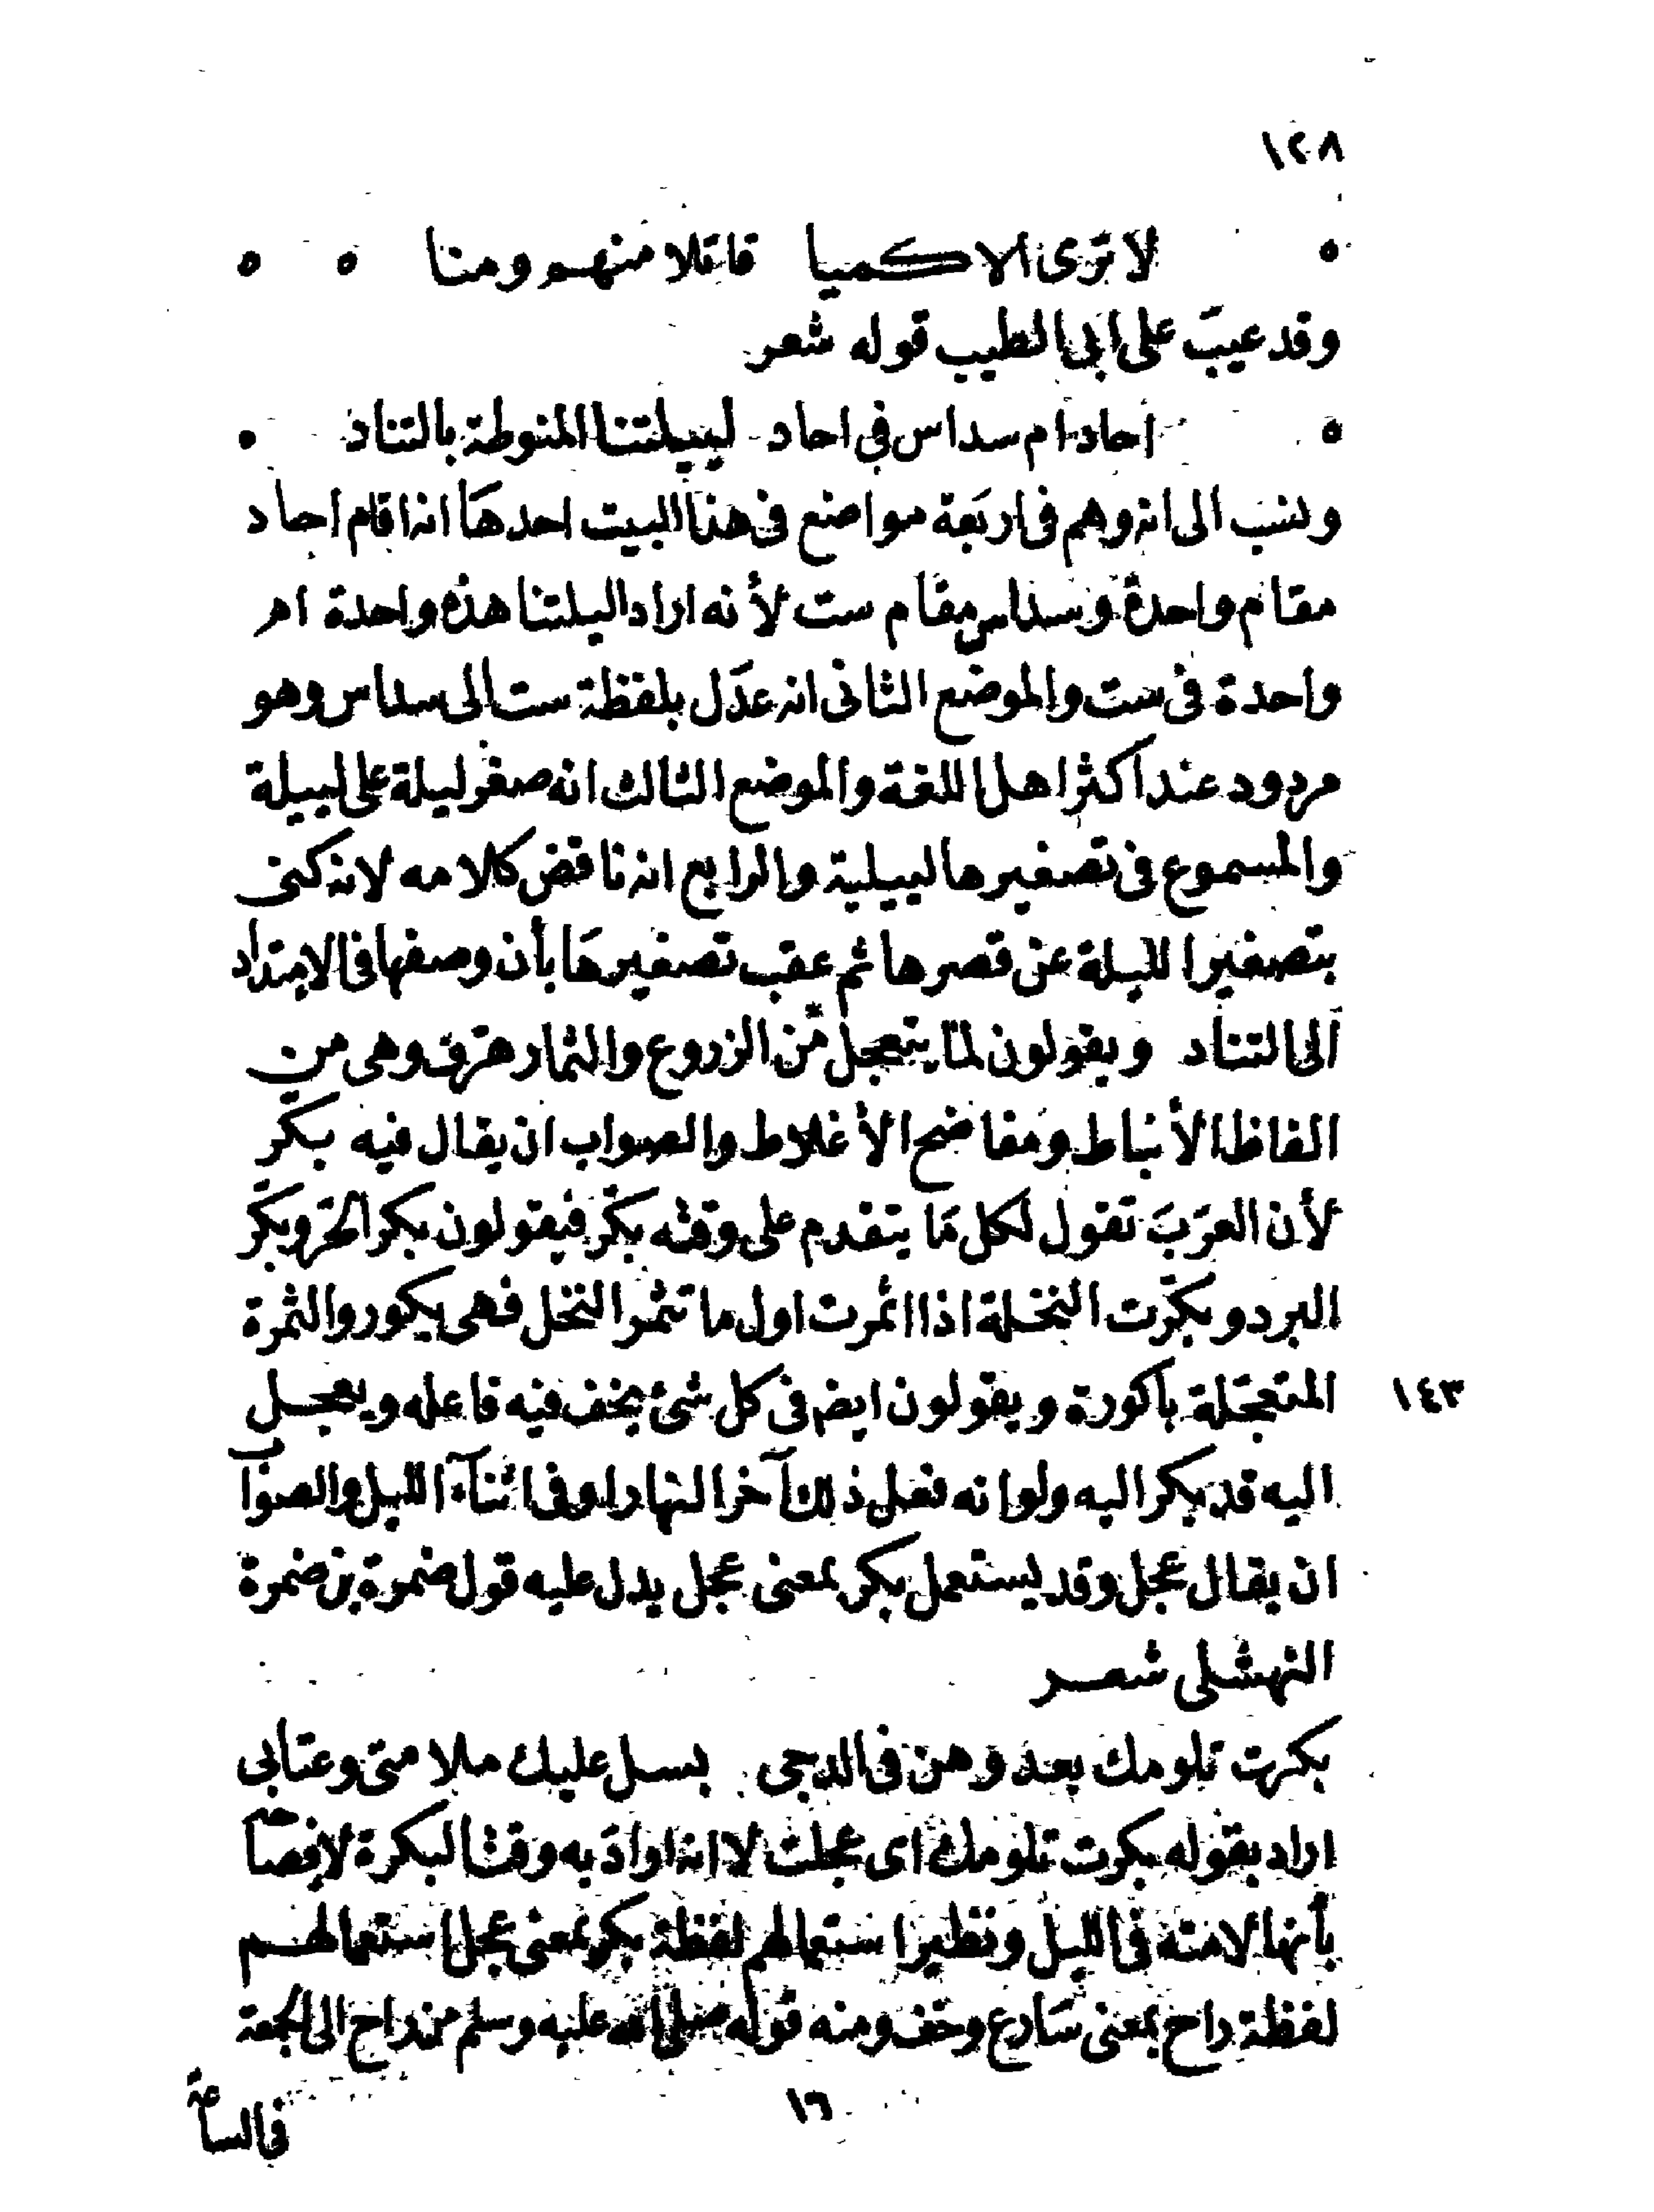 ١٢٨
لا ترى الا كميا قاتلا منهم ومنا
وقد عيب على ابى الطيب قوله شعر
احاد ام سداس فى احاد لييلتنا المنوطة بالتناد
ونسب الى انه وهم فى اربعة مواضع فى هذا البيت احدها انه اقام احاد
مقام واحدة وسداس مقام ست لأنه اراد اليلتنا هذه واحدة ام
واحدة فى ست والموضع الثانى انه عدل بلفظة ست الى سداس وهو
مردود عند اكثر اهل اللغة والموضع الثالث انه صغر ليلة على لييلة
والمسموع فى تصغيرها لييلية والرابع انه ناقض كلامه لانه كنى
بتصغير الليلة عن قصرها ثم عقب تصغيرها بأن وصفها فى الامتداد
الى التناد ويقولون لما يتعجل من الزروع والثمار هرف وهى من
الفاظ الأنباط ومفاضح الأغلاط والصواب ان يقال فيه بكر
لأن العرب تقول لكل ما يتقدم على وقته بكر فيقولون بكر الحر وبكر
البرد وبكرت النخلة اذا اثمرت اول ما تثمر النخل فهى بكور والثمرة
المتعجلة باكورة ويقولون ايضا فى كل شئ يخف فيه فاعله ويعجل
١٤٣
اليه قد بكر اليه ولو انه فعل ذلك آخر النهار او فى اثناء الليل والصواب
ان يقال عجل وقد يستعمل بكر بمعنى عجل يدل عليه قول ضمرة بن ضمرة
النهشلى شعر
بكرت تلومك بعد وهن فى الدجى بسل عليك ملامتى وعتابى
اراد بقوله بكرت تلومك اى عجلت لا انه اراد به وقت البكرة لإفصاحه
بأنها لامته فى الليل ونظير استعمالهم لفظة بكر بمعنى عجل استعمالهم
لفظة راح بمعنى سارع وخف ومنه قوله صلى الله عليه وسلم من راح الى الجمعة
١٦
فى الساعة